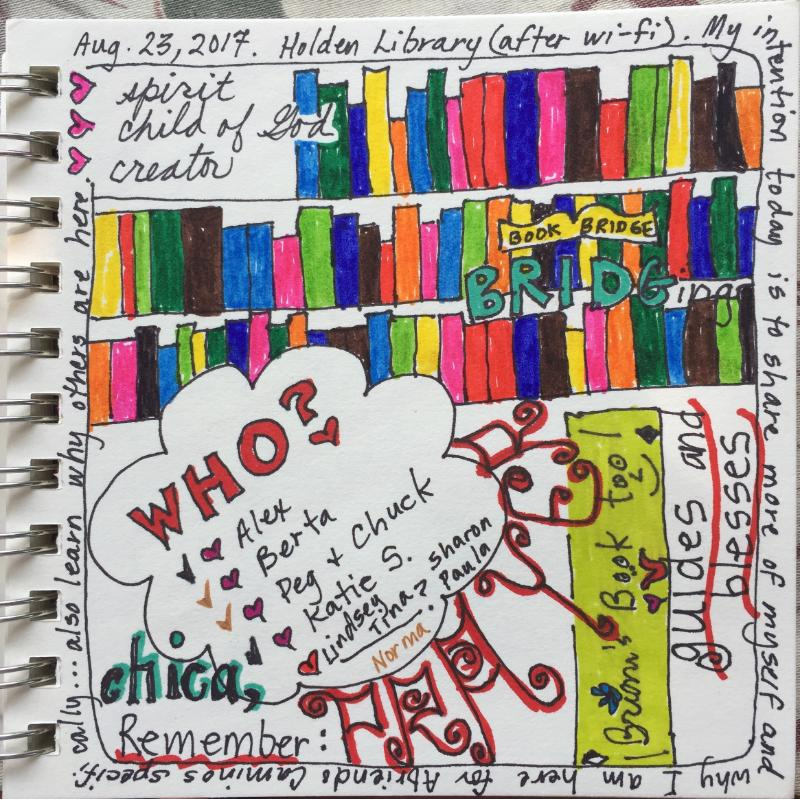 Aug. 23, 2017. Holden Library (after wi-fi). My
intention today is to share more of myself and
why I am here for Abriendo Caminos specifi-
cally... also learn why others are here.
spirit
child of God
creator
BOOK BRIDGE
BRIDGing
WHO?
Alex
Berta
Peg + Chuck
Katie S.
Lindsey Sharon
Tina? Paula
Norma
chica,
Remember:
Book too!
guides and
blesses